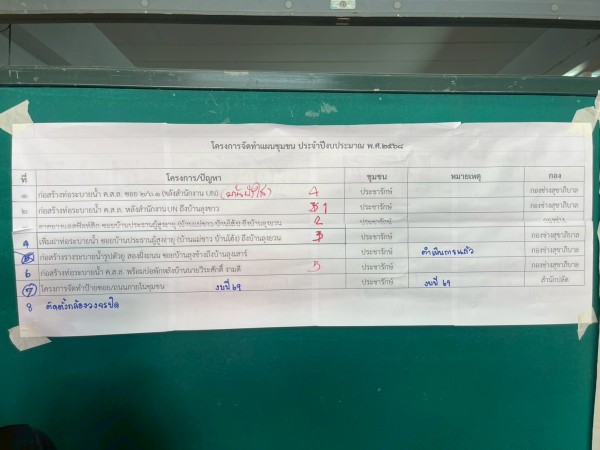 โครงการจัดทำแผนชุมชน ประจำปีงบประมาณ พ.ศ.๒๕๖๘
ที่ โครงการ/ปัญหา ชุมชน หมายเหตุ กอง
๑ ก่อสร้างท่อระบายน้ำ ค.ส.ล. ซอย ๒/๖.๑ (หลังสำนักงาน UN) 4 ประชารักษ์ กองช่างสุขาภิบาล
๒ ก่อสร้างท่อระบายน้ำ ค.ส.ล. หลังสำนักงาน UN ถึงบ้านลุงขาว 1 ประชารักษ์ กองช่างสุขาภิบาล
2 ประชารักษ์ กองช่าง
4 เพิ่มฝาท่อระบายน้ำ ซอยบ้านประธานผู้สูงอายุ (บ้านแม่ขาว บ้านโต้ง) ถึงบ้านลุงยวน 3 ประชารักษ์ กองช่างสุขาภิบาล
5 ก่อสร้างรางระบายน้ำรูปตัวยู สองฝั่งถนน ซอยบ้านลุงช้างถึงบ้านลุงเสาร์ ประชารักษ์ ดำเนินการแล้ว กองช่างสุขาภิบาล
6 ก่อสร้างท่อระบายน้ำ ค.ส.ล. พร้อมบ่อพักหลังบ้านนายวีระศักดิ์ งามดี 5 ประชารักษ์ กองช่างสุขาภิบาล
7 โครงการจัดทำป้ายซอย/ถนนภายในชุมชน งบปี 69 ประชารักษ์ งบปี 69 สำนักปลัด
8 ติดตั้งกล้องวงจรปิด